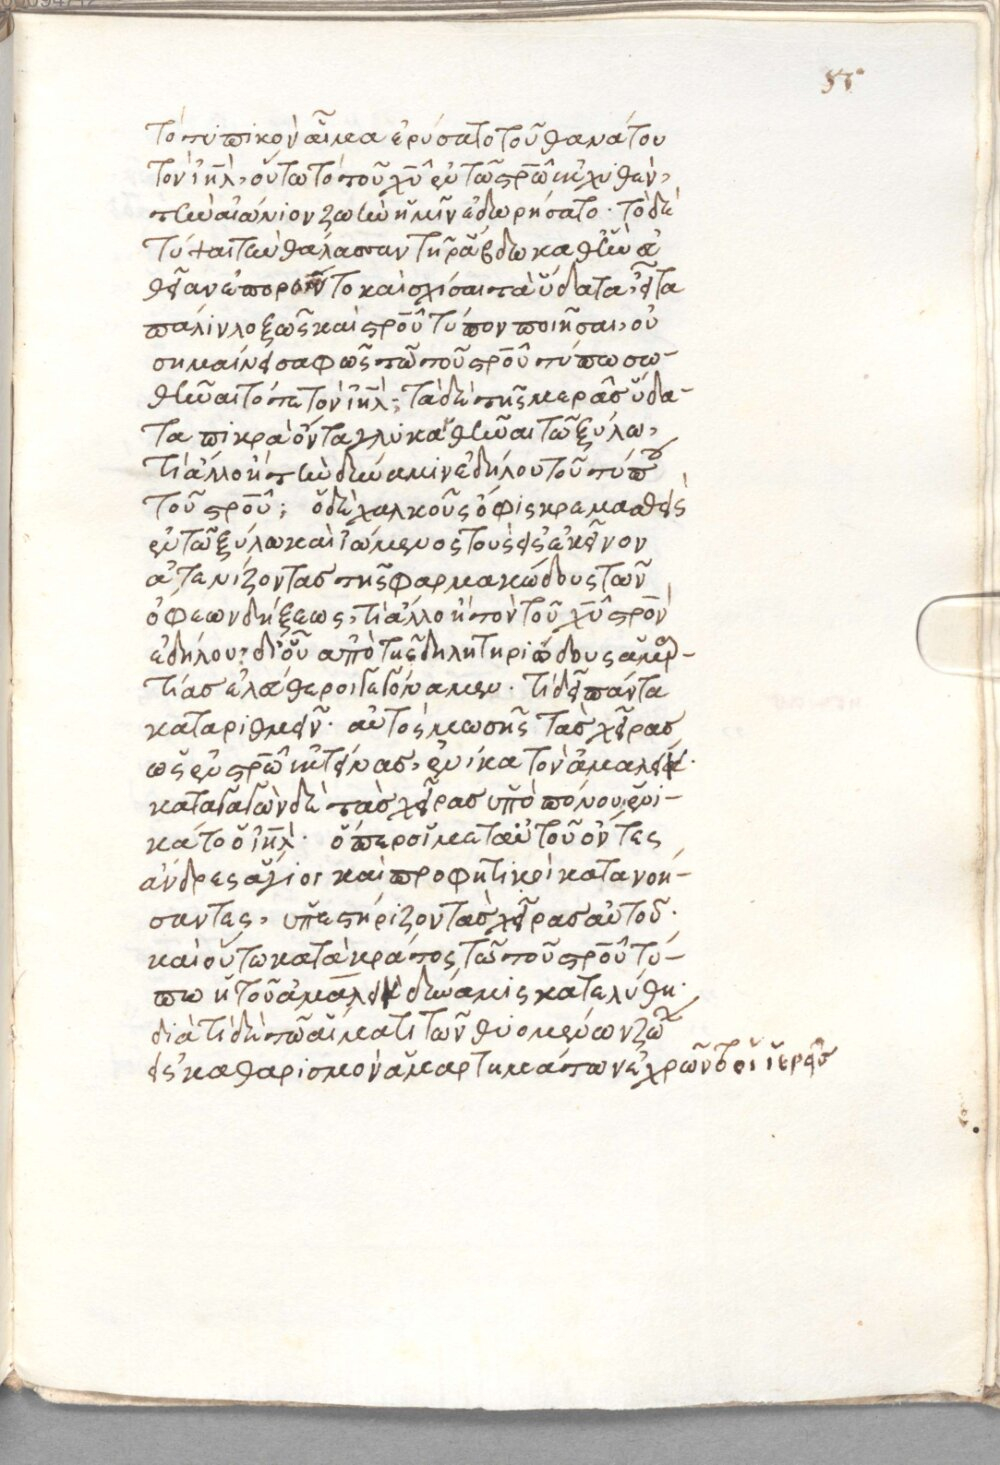 τὸ τυπικὸν αἷμα ἐρύσατο τοῦ θανάτου
τὸν ἰηλ, οὕτω τὸ τοῦ χυ ἐν τῶ σρῶ ἐκχυθὲν,
τὴν αἰώνιον ζωὴν ἡμῖν ἐδωρήσατο· τὸ δὲ
τύψαι τὴν θάλασσαν τῆ ράβδω καθ' ἣν
καὶ σχίσαι τὰ ὕδατα, εἶτα
πάλιν λοξῶς καὶ σροῦ τύπον ποιῆσαι, οὐ
σημαίνει σαφῶς τῶ τοῦ σροῦ τύπω σω-
θῆναι τότε τὸν ἰηλ; τὰ δὲ τῆς μερᾶς ὕδα-
τα πικρὰ ὄντα γλυκανθῆναι τῶ ξύλω,
τί ἄλλο ἢ τὴν δύναμιν ἐδήλου τοῦ τύπου
τοῦ σροῦ; ὁ δὲ χαλκοῦς ὄφις κρεμασθεὶς
ἐν τῶ ξύλω καὶ ἰώμενος τοὺς εἰς ἐκεῖνον
ἀτενίζοντας τῆς φαρμακώδους τῶν
ὄφεων δήξεως, τί ἄλλο ἢ τὸν τοῦ χυ σρὸν
ἐδήλου; δι' οὗ ἀπὸ τῆς δηλητηριώδους ἁμαρ-
τίας ἐλεύθεροι γεγόναμεν· τί δεῖ πάντα
καταριθμεῖν· αὐτὸς μωσῆς τὰς χεῖρας
ὡς ἐν σρῶ ἐκτείνας, ἐνίκα τὸν ἀμαλήκ·
καταγαγὼν δὲ τὰς χεῖρας ὑπὸ πόνου, ἐνι-
κᾶτο ὁ ἰηλ· ὅπερ οἱ μετ' αὐτοῦ ὄντες
ἄνδρες ἅγιοι καὶ προφητικοὶ κατανοή-
σαντες, ὑπεστήριζον τὰς χεῖρας αὐτοῦ·
καὶ οὕτω κατὰ κράτος τῶ τοῦ σροῦ τύ-
πω ἡ τοῦ ἀμαλὴκ δύναμις κατελύθη·
διὰ τί δὲ τῶ αἵματι τῶν θυομένων ζώων
εἰς καθαρισμὸν ἁμαρτημάτων ἐχρῶντο οἱ ἱερεῖς